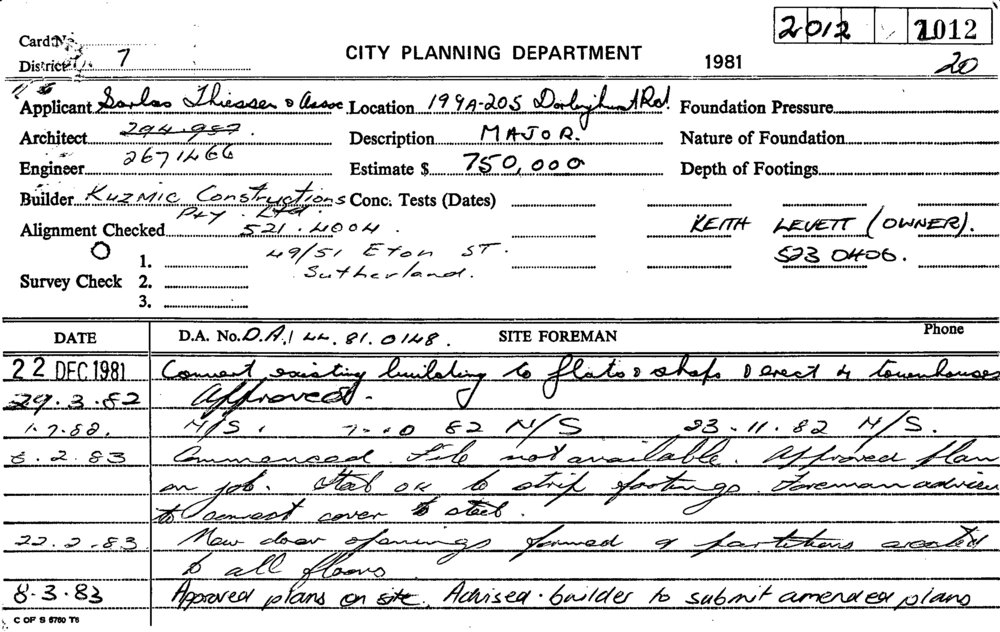 2012 1012
Card No.
CITY PLANNING DEPARTMENT 1981 20
District 7
Applicant Sarlas Thiessen & Assoc Location 199A-205 Darlinghurst Rd. Foundation Pressure
Architect 294.982. Description MAJOR. Nature of Foundation
Engineer 2671466 Estimate $ 750,000 Depth of Footings
Builder Kuzmic Constructions Conc. Tests (Dates)
Pty. Ltd.
Alignment Checked 521.4004 KEITH LEVETT (OWNER).
49/51 Eton ST. 523 0406.
1.
Survey Check 2. Sutherland.
3.
DATE D.A. No. D.A.! 44.81.0148. SITE FOREMAN Phone
22 DEC 1981 Convert existing building to flats & shops & erect 4 townhouses
29.3.82 Approved.
1.7.82. N/S. 7-10 82 N/S 23.11.82 N/S.
.2.83 Commenced. File not available. Approved plan
on job. Steel OK to strip footings. Foreman advised
to correct cover to steel.
22.2.83. New door openings formed & partitions erected
to all floors
8.3.83 Approved plans on site. Advised builder to submit amended plans
C OF S 5760 T6